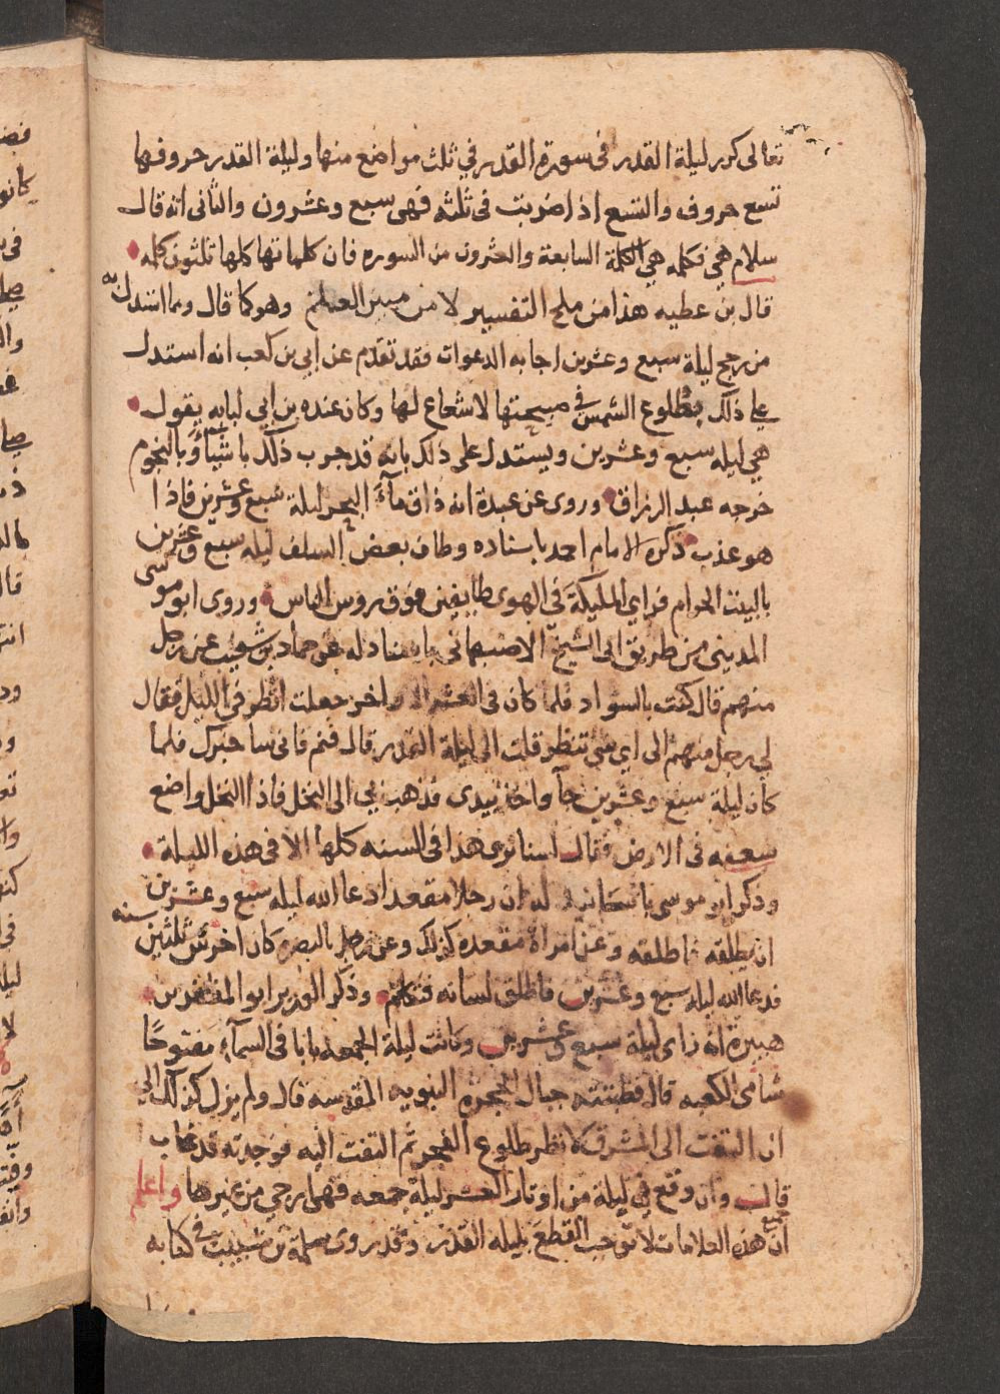 تعالى كرر ليلة القدر فى سورة القدر في ثلث مواضع منها وليلة القدر حروفها
تسع حروف والتسع اذا ضربت فى ثلثه فهى سبع وعشرون والثانى انه قال
سلام هي فكلمه هي الكلمة السابعة والعشرون من السوره فان كلماتها كلها ثلثون كلمه
قال بن عطيه هذا من ملح التفسير لا من متين العلم وهو كما قال ومما استدل به
من رجح ليلة سبع وعشرين اجابه الدعوات فقد تقدم عن ابي بن كعب انه استدل
على ذلك بطلوع الشمس في صبيحتها لا شعاع لها وكان عنده بن ابي لبابه يقول
هي ليله سبع وعشرين ويستدل على ذلك بانه قد جرب ذلك باشياء وبالنجوم
خرجه عبد الرزاق وروى عن عبدة انه ذاق ماء البحر ليلة سبع وعشرين فاذا
هو عذب ذكره الامام احمد باسناده وطاف بعض السلف ليله سبع وعشرين
بالبيت الحرام فراي المليكة في الهوى طايفين فوق روس الناس وروى ابو موسى
المديني من طريق ابى الشيخ الاصبهاني باسناد له عن حماد بن شعيب عن رجل
منهم قال كنت بالسواد فلما كان فى العشر الاواخر جعلت انظر في الليل فقال
لي رجل منهم الى اي شي تنظر قلت الى ليلة القدر قال فنم فانى ساخبرك فلما
كان ليلة سبع وعشرين جا واخذ بيدى فذهب بي الى النخل فاذا النخل واضع
سعفه فى الارض فقال لسنا نرى هذا فى السنه كلها الا فى هذه الليلة
وذكر ابو موسى باسانيد له ان رجلا مقعدا دعا الله ليله سبع وعشرين
ان يطلقه فاطلقه وعن امراة مقعده كذلك وعن رجل بالبصره كان اخرس ثلثين سنه
فدعا الله ليله سبع وعشرين فاطلق لسانه فتكلم وذكر الوزير ابو المظفر بن
هبيرة انه راى ليلة سبع وعشرين وكانت ليلة الجمعه بابا فى السماء مفتوحا
شامى الكعبه قال فظننته حيال الحجرة النبويه المقدسه قال ولم يزل كذلك الى
ان التفت الى المشرق لانظر طلوع الفجر ثم التفت اليه فوجدته قد غاب
قال وان وقع في ليلة من اوتار العشر ليلة جمعه فهى ارجى من غيرها واعلم
ان جميع هذه العلامات لا توجب القطع بليله القدر وقد روى سلمة بن شبيب في كتابه